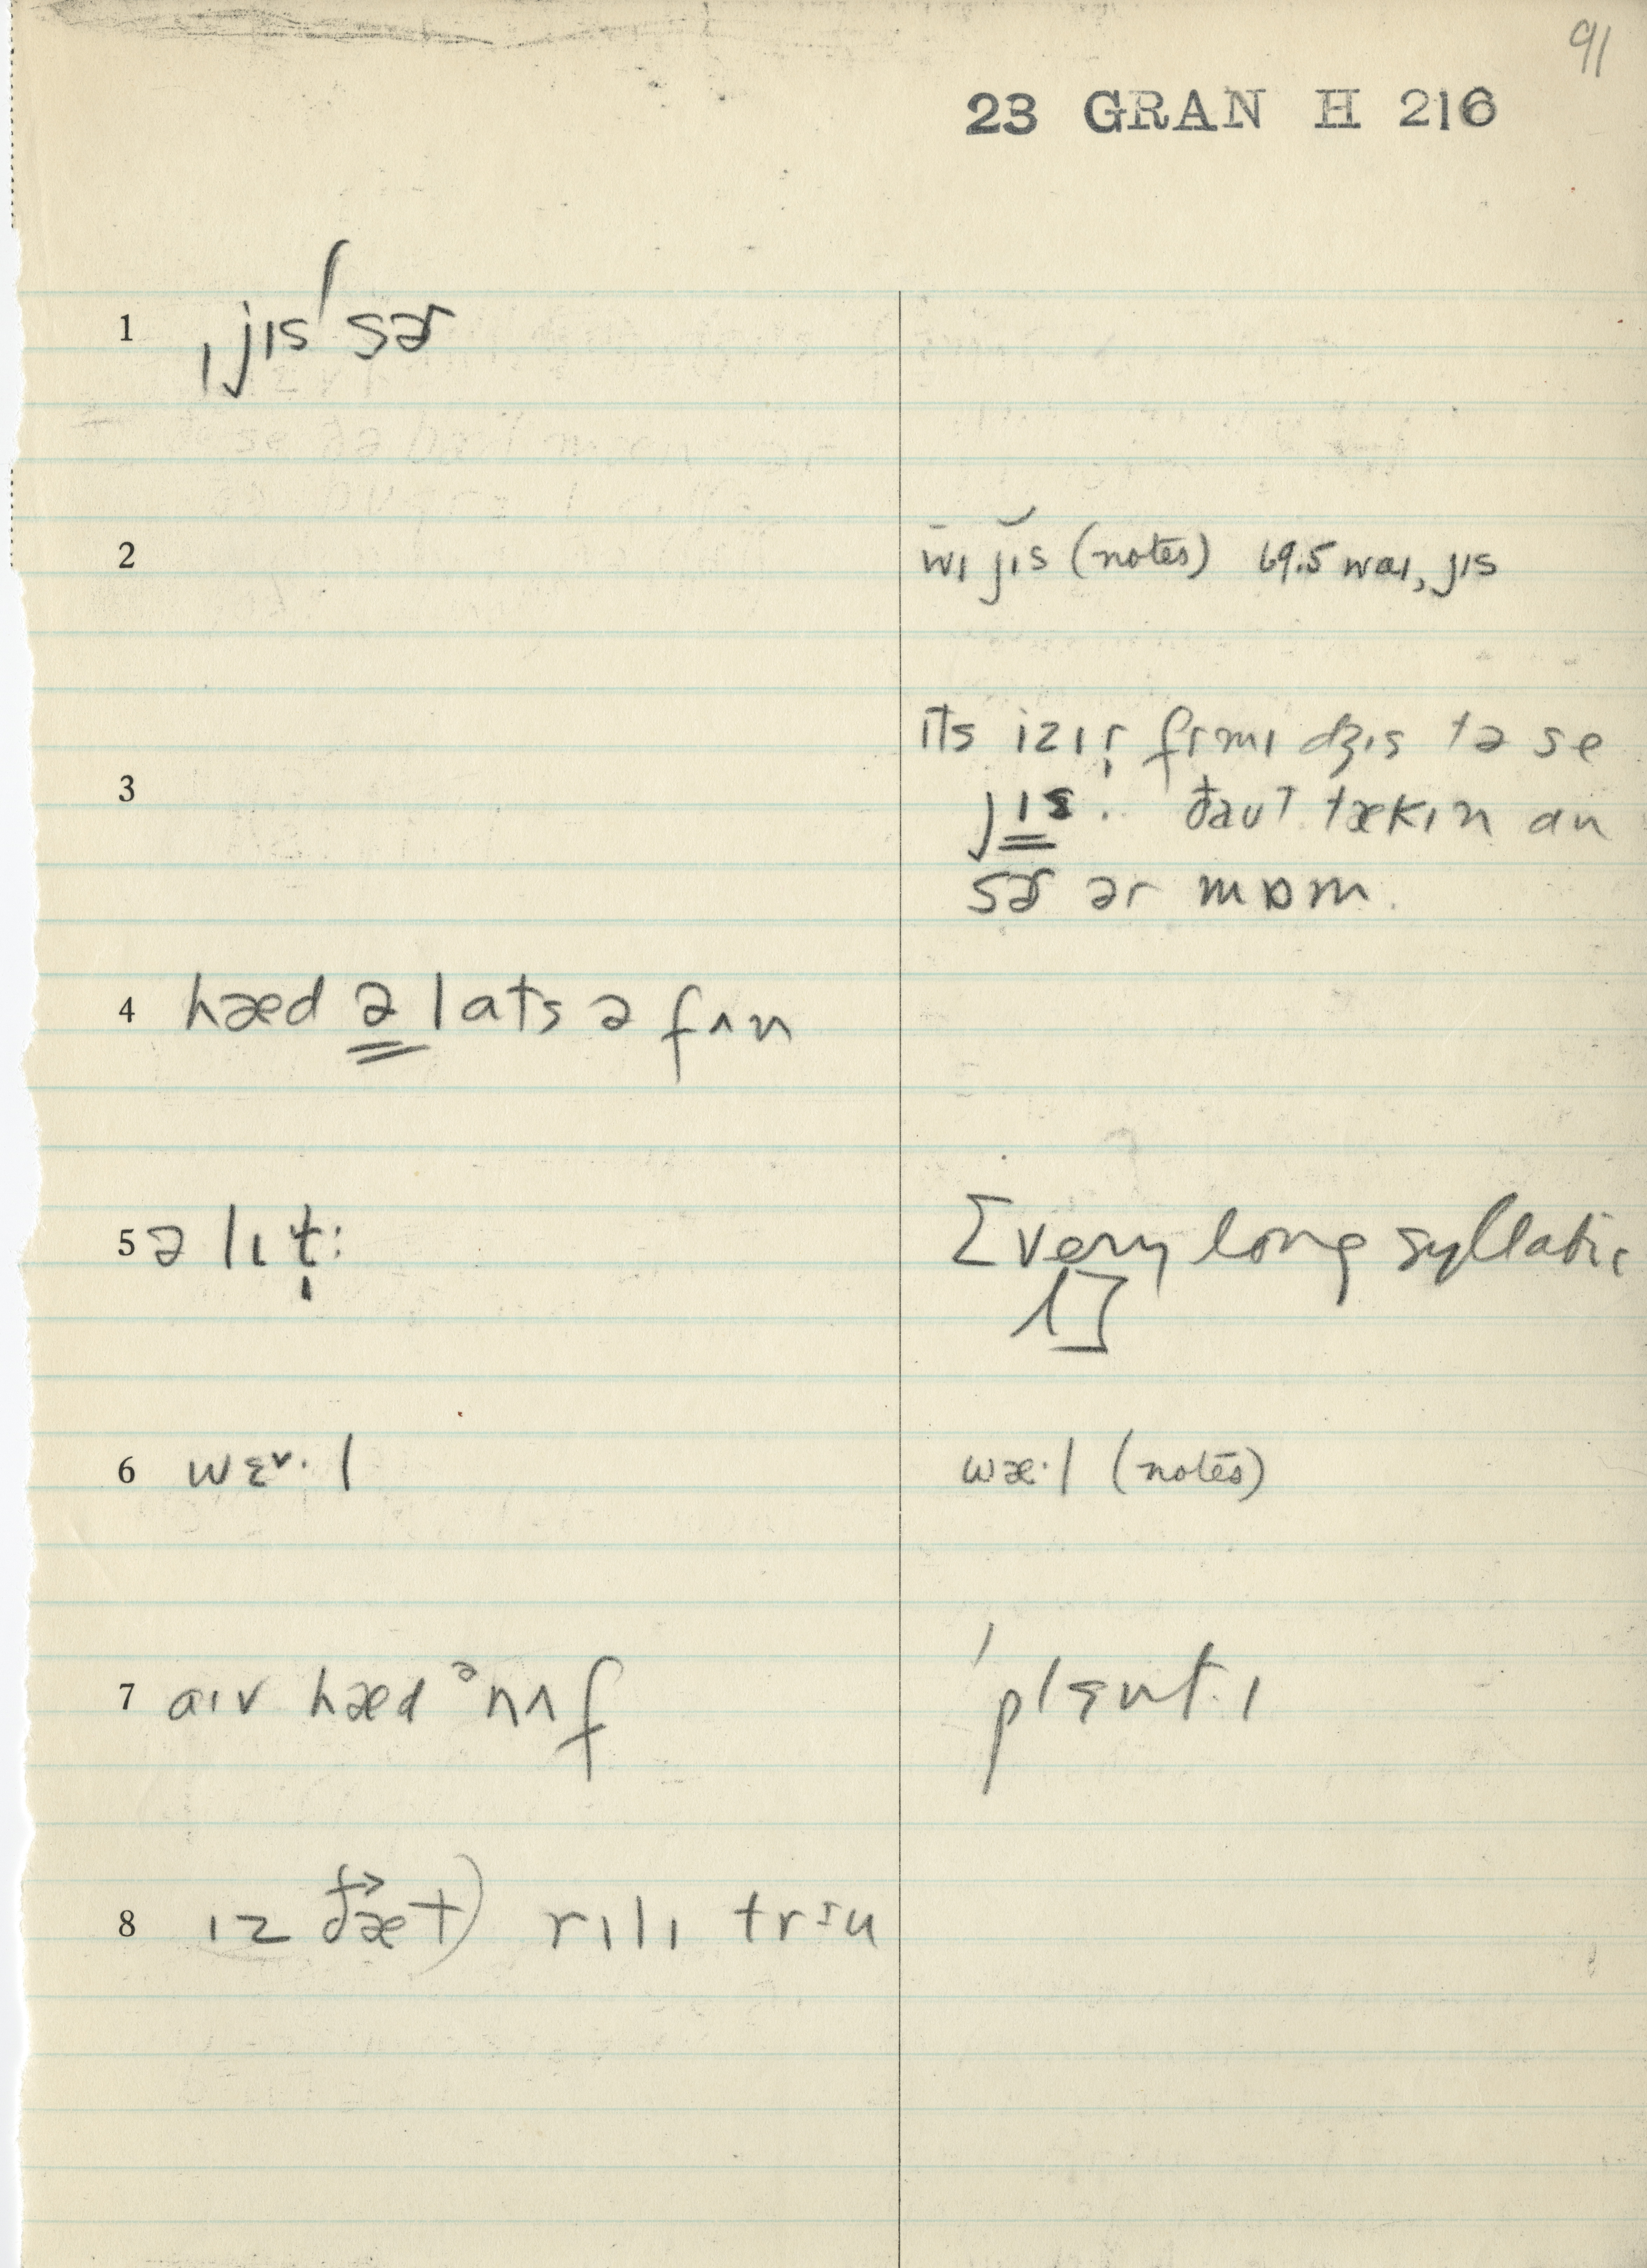 91
23 GRAN H 216
1 ˌjɪs ˈsɚ
2 w̄ɪ j̆ɪs (notes) 69.5 waɪ, jɪs
3 ɪts izɪr̩ fr mɪ dʒɪs tə se
jɪs. ðaut tækɪn an
sɚ ər mɒm.
4 hæd ə lats ə fʌn
5 ə lɪt̬̩:
[very long syllabic
l]
6 wɛ˅· l
wæ·l (notes)
7 aɪv hæd ᵊnʌf
ˈplɛnt.ɪ
8 ɪz ðæt) rɪlɪ trɪu